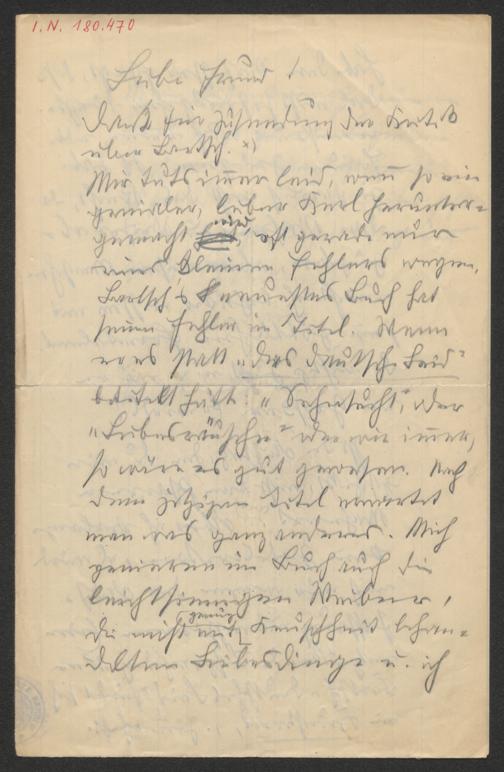 I.N. 180.470
Lieber Freund!
Dank für Zusendung der Kritik
über Bartsch. x)
Mir tuts immer leid, wenn so ein
genialer, lieber Kerl herunter-
gemacht wird, oft gerade nur
eines kleinen Fehlers wegen.
Bartsch's neuestes Buch hat
seinen Fehler im Titel. Wenn
er es statt „das deutsche Leid"
betitelt hätte: „Sehnsucht", oder
„Liebesräusche" oder wie immer,
so wäre es gut gewesen. Nach
dem jetzigen Titel erwartet
man was ganz anderes. Mich
genieren im Buch auch die
leichtsinnigen Weiber,
die nicht mit genug Keuschheit behan-
delten Liebesdinge u. ich